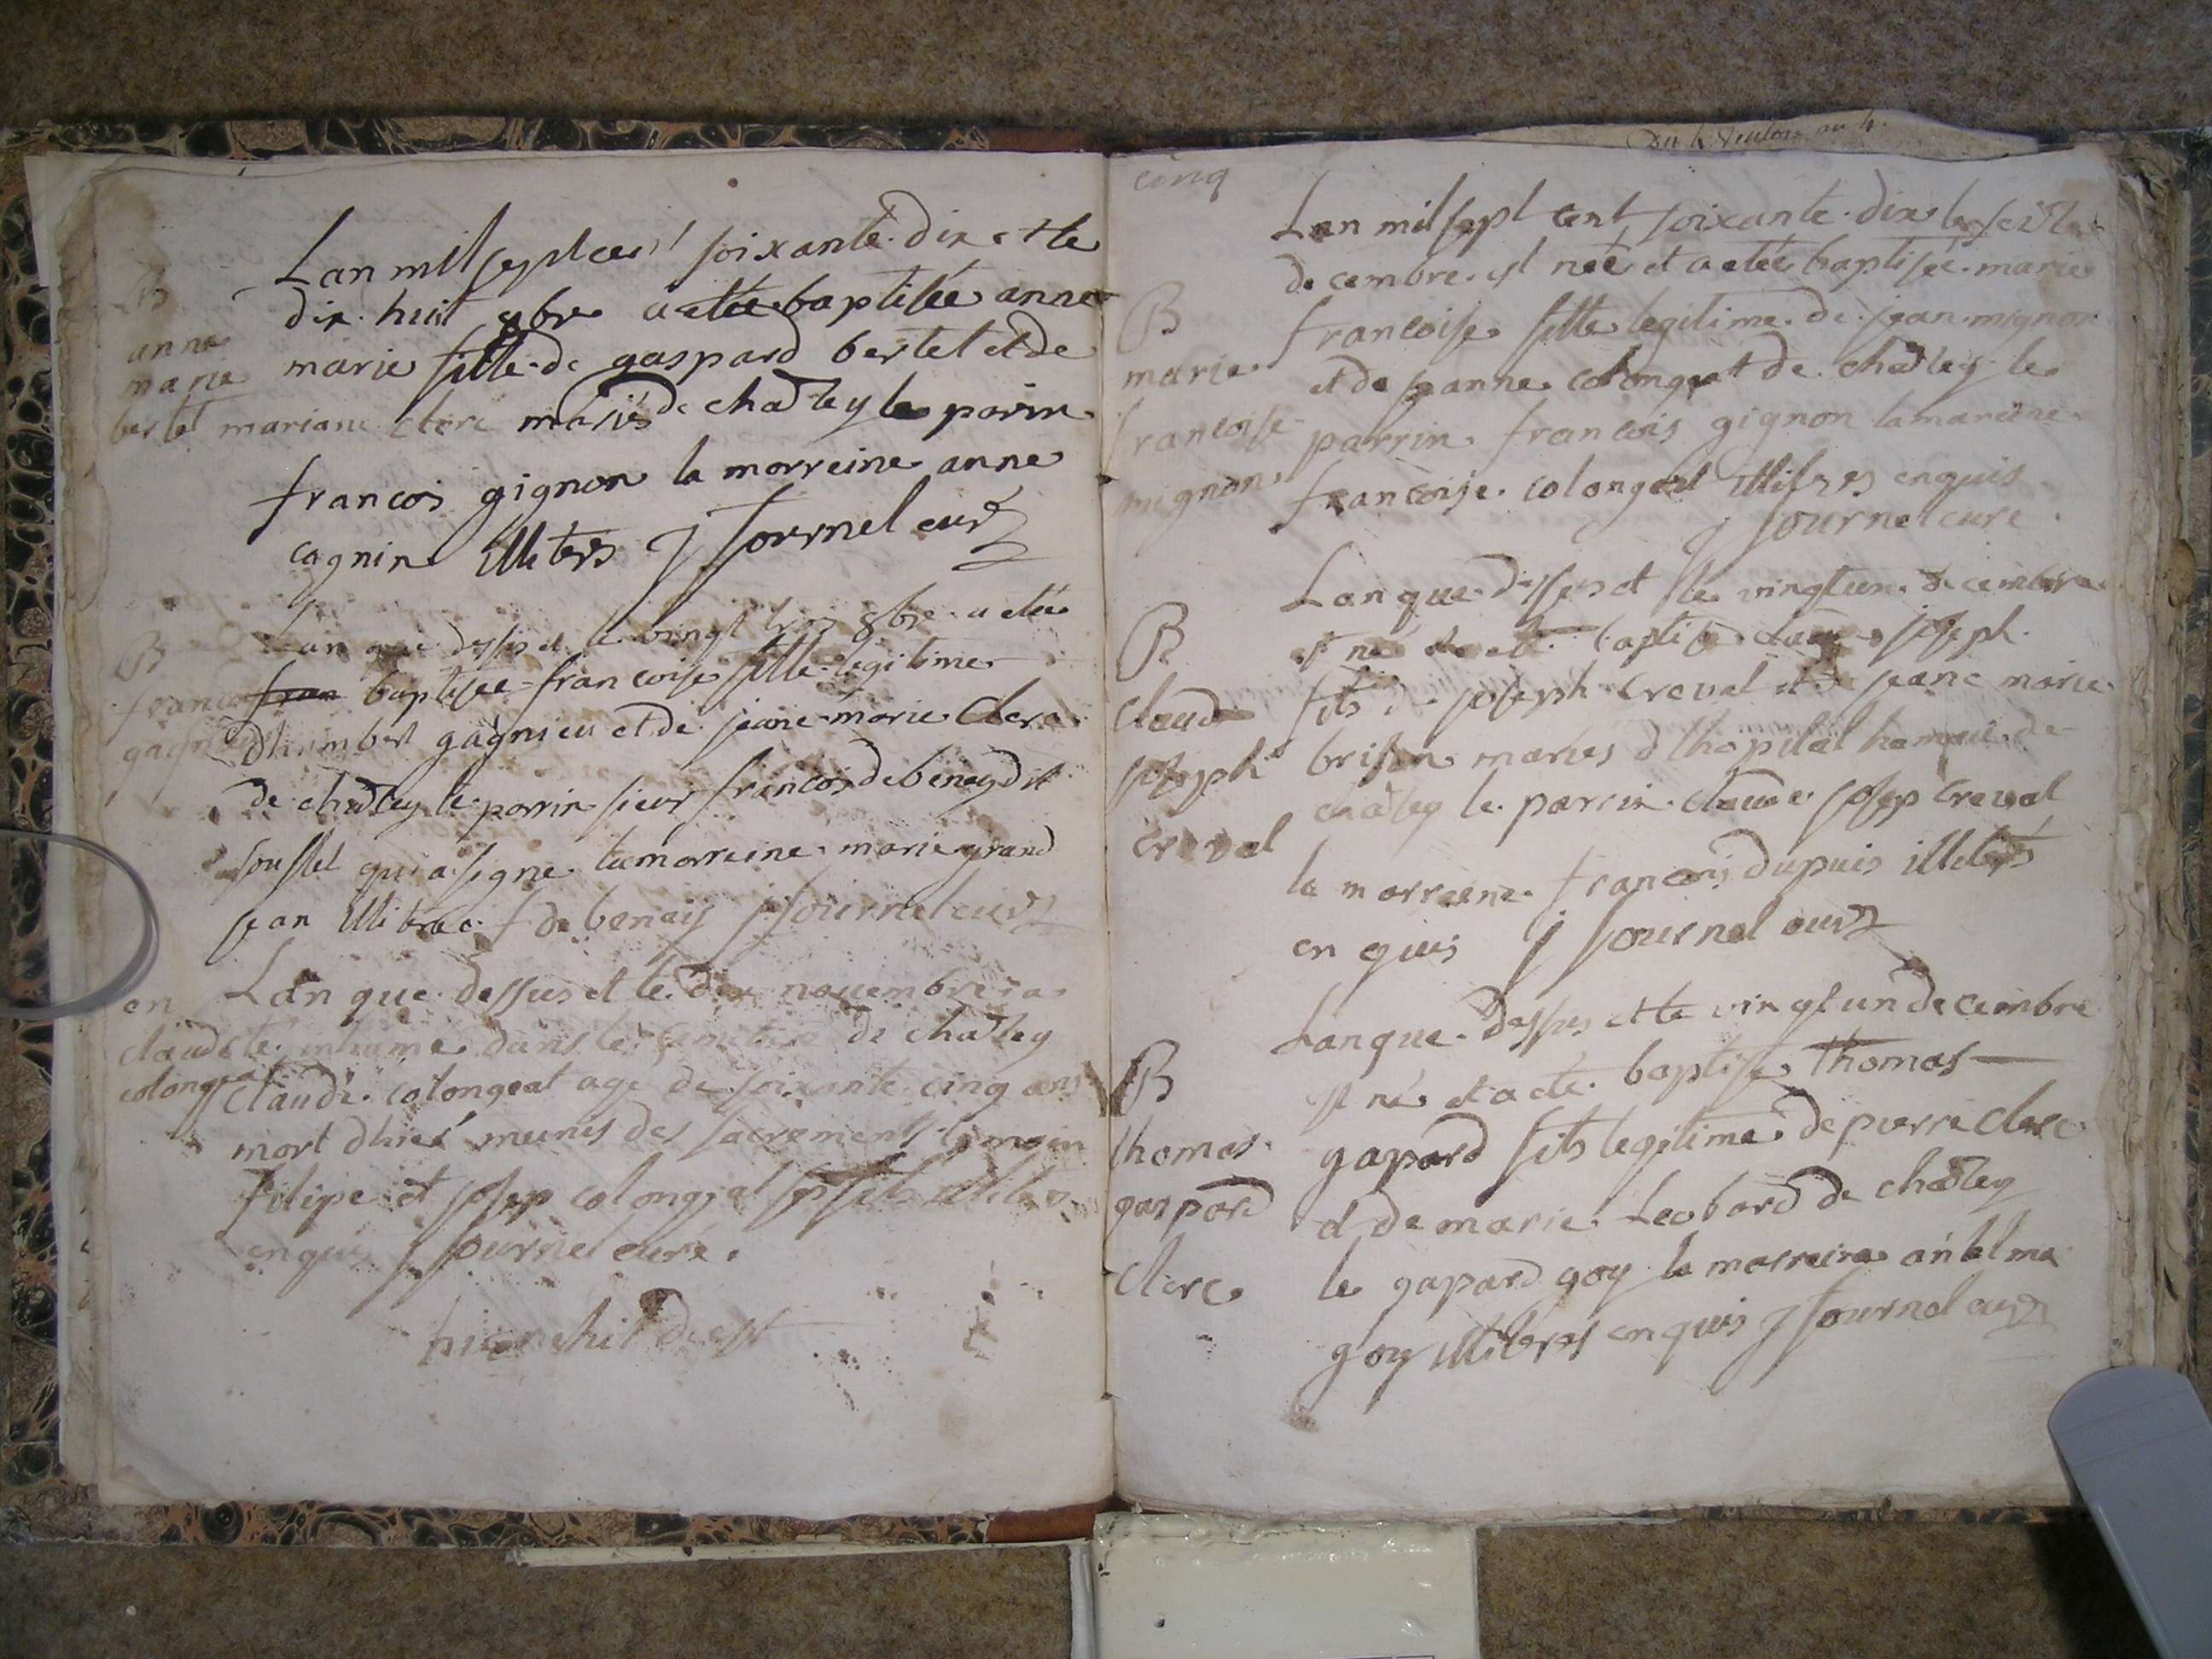 Lan mil septcent soixante dix et le
B
dix huit 9bre a etée baptisée anne
anne
marie
bertet
marie fille de gaspard bertet et de
mariane clerc mariés de chatley le parin
francois gignon la marreine anne
cagnin illiters j fournel curé
B
francoise
gagnieu
Lan que dessus et le vingt trois 8bre a etée
fran baptisée francoise fille legitime
dhumbert gagnieu et de jeane marie clerc
de chatley le parrin sieur francois de benay dit
qui a signe la marreine marie grand
jean illitrée f de benay j fournel curé
en
claude
colongeat
Lan que dessus et le dix novembre a
été inhumé dans le cemitiere de chatley
claude colongeat age de soixante cinq ans
mort dhier munis des sacrements temoin
filipe et josep colongeat ses fils illiters
enquis j fournel curé.
cinq
Lan mil sept cent soixante dix le seitze
B
marie
francoise
mignon
decembre est neé et a eteé baptisée marie
francoise fille legitime de jean mignon
et de jeanne colongeat de chatley le
parrin francois gignon la mareine
francoise colongeat illitres enquis
j fournel curé
B
claude
joseph
creval
Lan que dessus et le vingt un decembre
est né et a eté baptisé claude joseph
fils de joseph creval et de jeane marie
brison mariés dlhopital hameau de
chatley le parrin claude josep creval
la marreine francois dupuis illiters
en quis j fournel curé
B
thomas
gaspard
clerc
Lan que dessus et le vingt un decembre
est né et a eté baptisé thomas
gapard fils legitime de pierre clerc
et de marie Leobard de chatley
le gapard goy la marreine antelma
goy illitres en quis j fournel curé